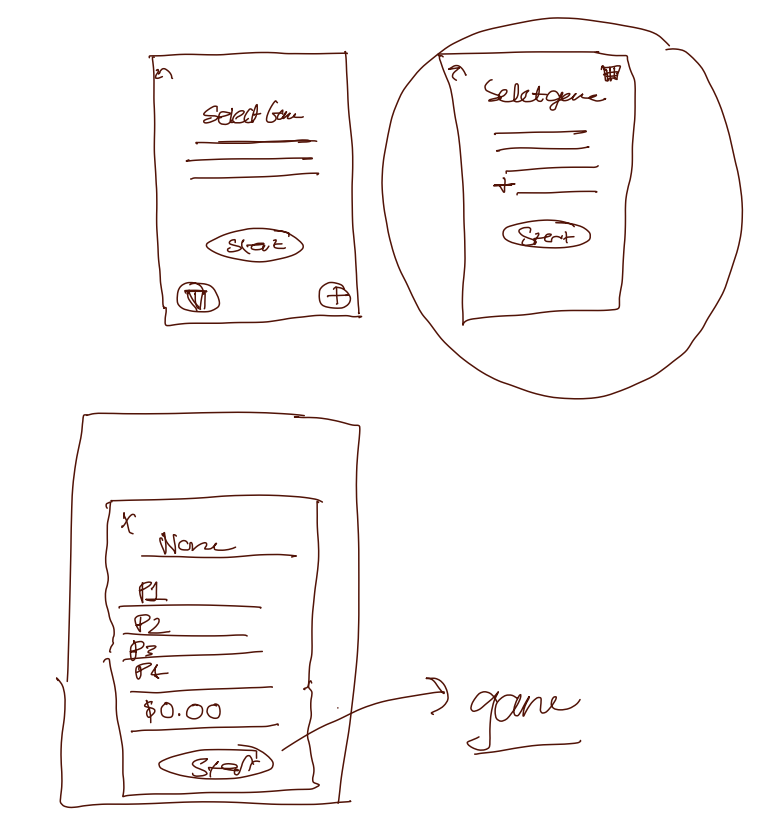 Select Game
Start
Select game
+
Start
X
Name
P1
P2
P3
P4
$0.00
Start
game